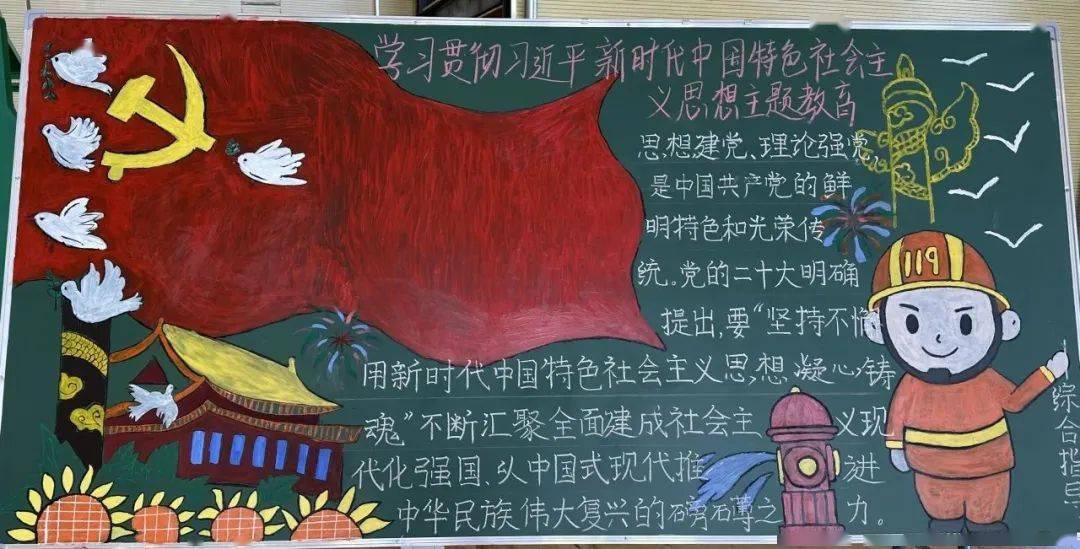 学习贯彻习近平新时代中国特色社会主
义思想主题教育
思想建党、理论强党,
是中国共产党的鲜
明特色和光荣传
统。党的二十大明确
提出,要“坚持不懈
用新时代中国特色社会主义思想凝心铸
魂”不断汇聚全面建成社会主义现
代化强国、以中国式现代推进
中华民族伟大复兴的磅礴之力。
119
综合指导